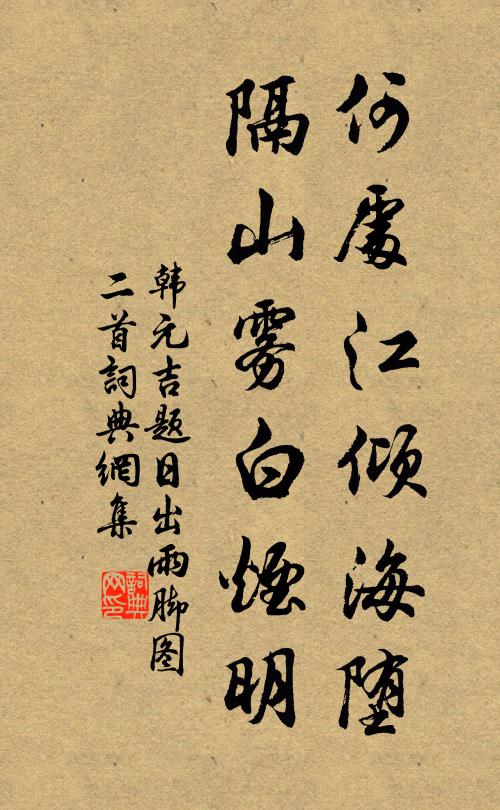 何處江傾海墮
隔山雾白煙明
韩元吉题日出雨脚图
二首詞典網集
詞典
网印